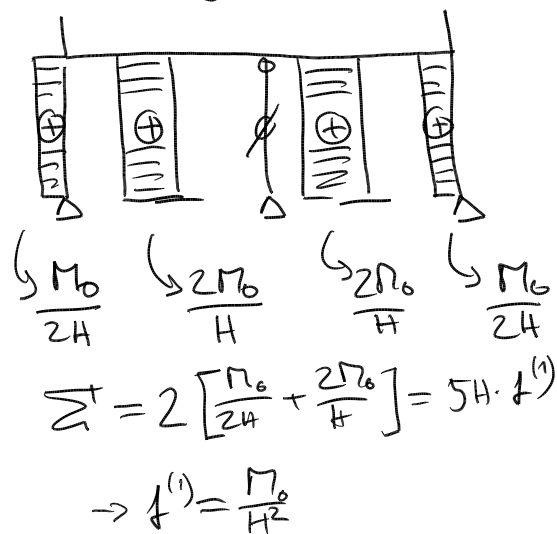 M₀/2H 2M₀/H 2M₀/H M₀/2H
Σ⁺ = 2 [M₀/2H + 2M₀/H] = 5H · f⁽¹⁾
→ f⁽¹⁾ = M₀/H²